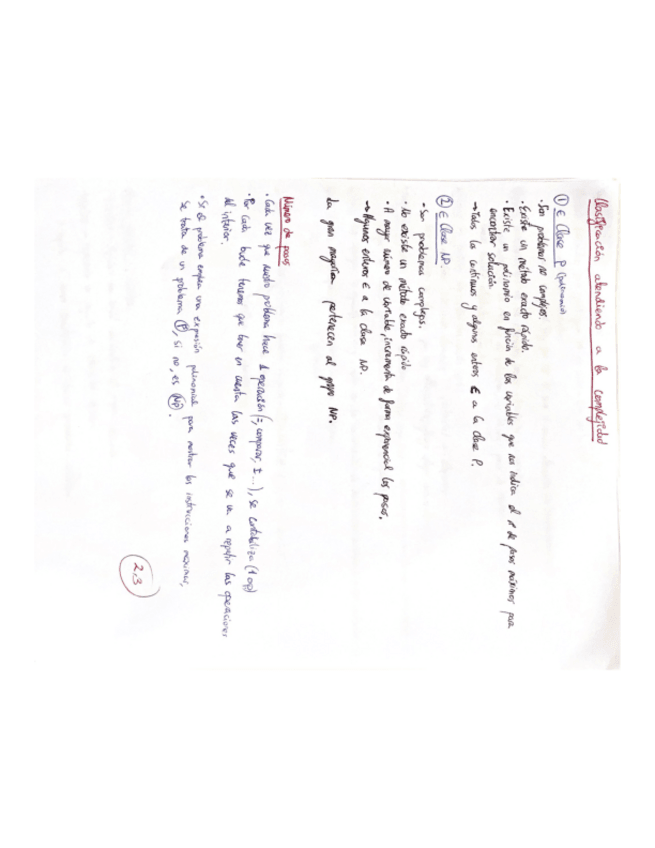 Clasificación atendiendo a la complejidad
① ∈ Clase P (polinomio)
· Son problemas no complejos.
· Existe un método exacto rápido.
· Existe un polinomio en función de las variables que nos indica el nº de pasos máximos para
encontrar solución.
→ Todos los continuos y algunos enteros ∈ a la clase P.
② ∈ Clase NP.
· Son problemas complejos.
· No existe un método exacto rápido
· A mayor número de variable, incrementa de forma exponencial los pasos.
→ Algunos enteros ∈ a la clase NP.
La gran mayoría pertenecen al grupo NP.
Número de pasos
· Cada vez que nuestro problema hace 1 operación (=, comparar, ± ...), se contabiliza (1 op)
· Por cada bucle tenemos que tener en cuenta las veces que se va a repetir las operaciones
del interior.
· Si el problema emplea una expresión polinomial para mostrar las instrucciones máximas,
se trata de un problema (P), si no, es (NP).
2.3